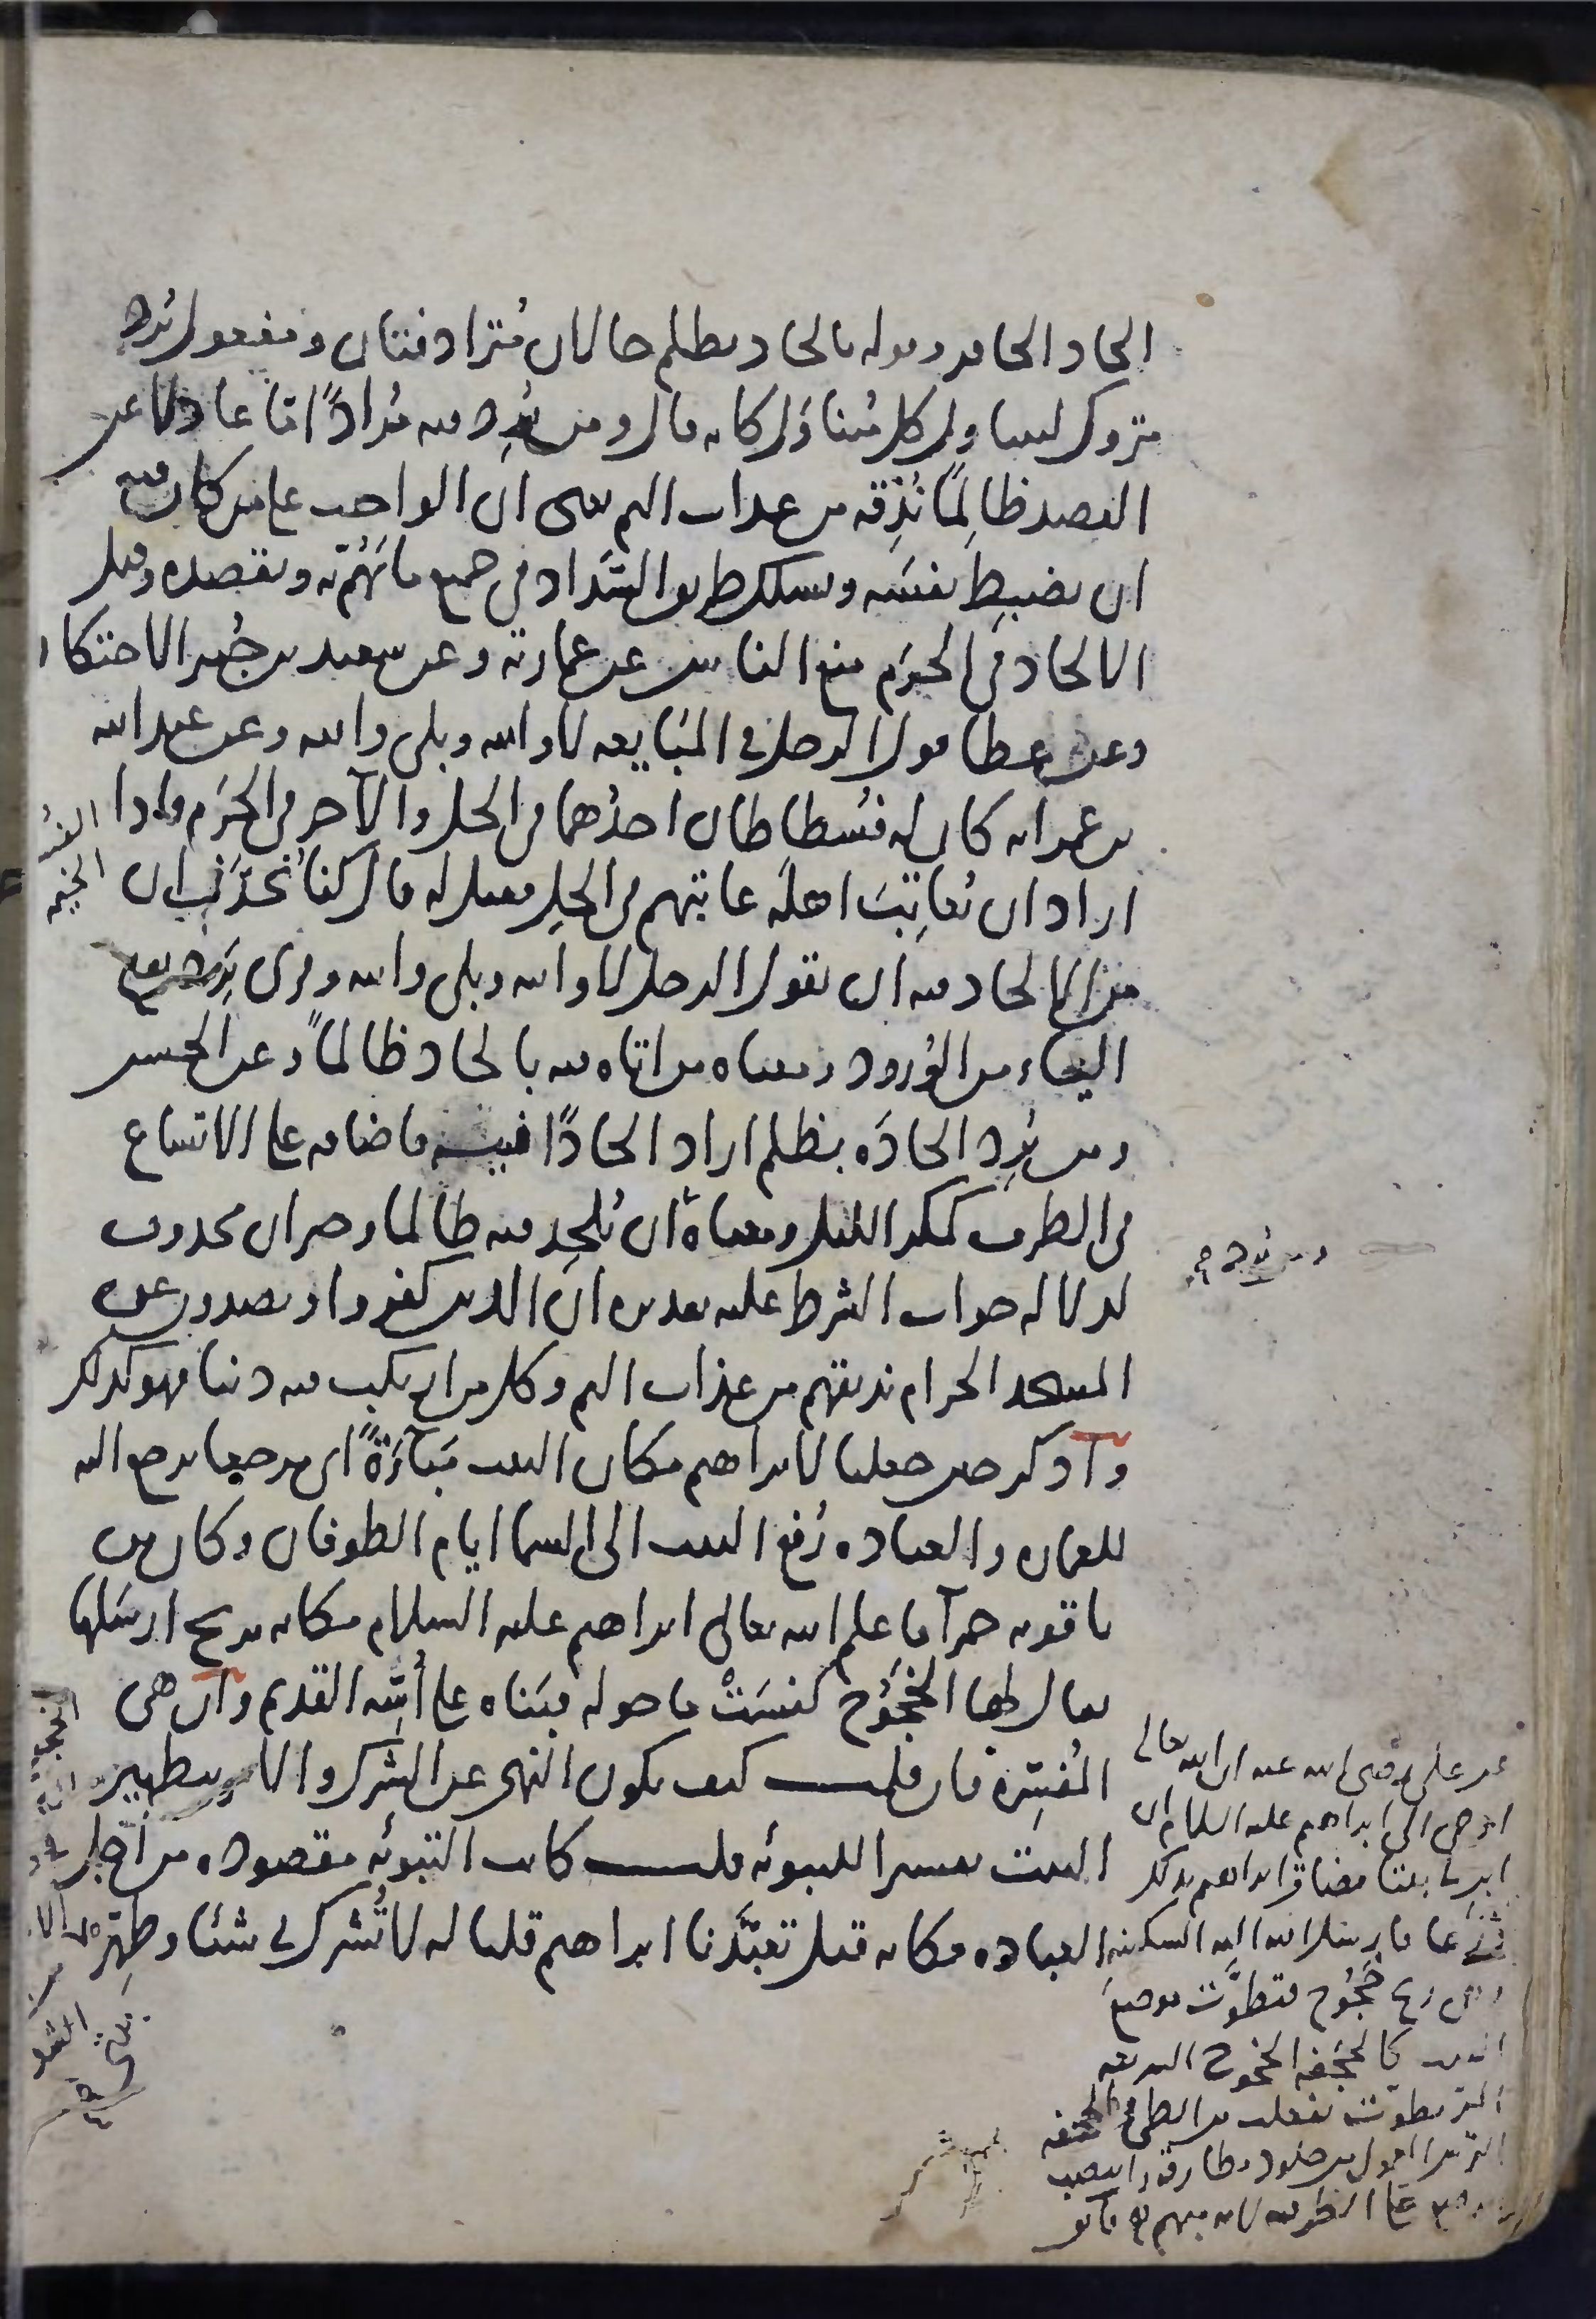 الحاد الحافر وقوله بالحاد بظلم حالان مترادفتان ومفعول يُرِد
متروك ليتناول كل متناوَل كانه قال ومن يُرِد فيه مُرادًا اما عادلا عن
القصد ظالِمًا نُذِقه من عذاب اليم يعنى ان الواجب على من كان فيه
ان يضبِط نفسَه ويسلك طريق السَّداد فى جميع ما يَهُمّ به ويقصده وقيل
الالحاد فى الحَرَم منع الناس عن عمارته وعن سعيد بن جُبير الاحتكار
وعن عطا قول الرجل فى المبَايعه لا والله وبلى والله وعن عبد الله
بن عمر انه كان له فُسْطاطان احدُهما فى الحل والآخر فى الحَرَم فاذا
اراد ان يُعاتِبَ اهلَه عاتبهم فى الحِل فقيل له فقال كنا نُحدَّثُ ان
من الالحاد فيه ان يقول الرجل لا والله وبلى والله وقرى يَرِد بفتح
الياء من الوُرود ومعناه من اتاه فيه بالحاد ظالمًا وعن الحسن
ومن يُرِد الحادَه بظلم اراد الحادًا فيه فاضافه على الاتساع
فى الظرف كمكر الليل ومعناه ان يُلحِد فيه ظالما وخبر ان محذوف
لدلاله جواب الشرط عليه تقديره ان الذين كفروا ويصدون عن
المسجد الحرام نذيقهم من عذاب اليم وكل من ارتكب فيه ذنبا فهو كذلك
واذكر حين جعلنا لابراهيم مكان البيت مَبآءَةً اى مرجعا يرجع اليه
للعماره والعباده رُفع البيت الى السما ايام الطوفان وكان من
ياقوته حمرآ فاعلم الله تعالى ابراهيم عليه السلام مكانه بريح ارسَلها
يقال لها الخَجُوج كنسَتْ ما حوله فبَناه على اُسِّه القديم وان هى
المُفسِّره فان قلت كيف يكون النهى عن الشرك والامر بتطهير
البيت تفسيرا للتبوئه قلت كانت التبوئه مقصوده من اجل
العباده فكانه قيل تعبَّدَنا ابراهيم قلنا له لا تُشرك بى شيئا وطهِّر
الخيمه
ومن يرد فيه
عن على رضى الله عنه ان الله تعالى
اوحى الى ابراهيم عليه السلام ان
ابن لى بيتا فضاق ابراهيم بذلك
ذرعا فارسل الله اليه السكينه
وهى ريح خَجُوج فتطوَّت موضعَ
البيت كالحَجَفه الخجوج السريعه
المر تطوت تفعلت من الطى والحجفه